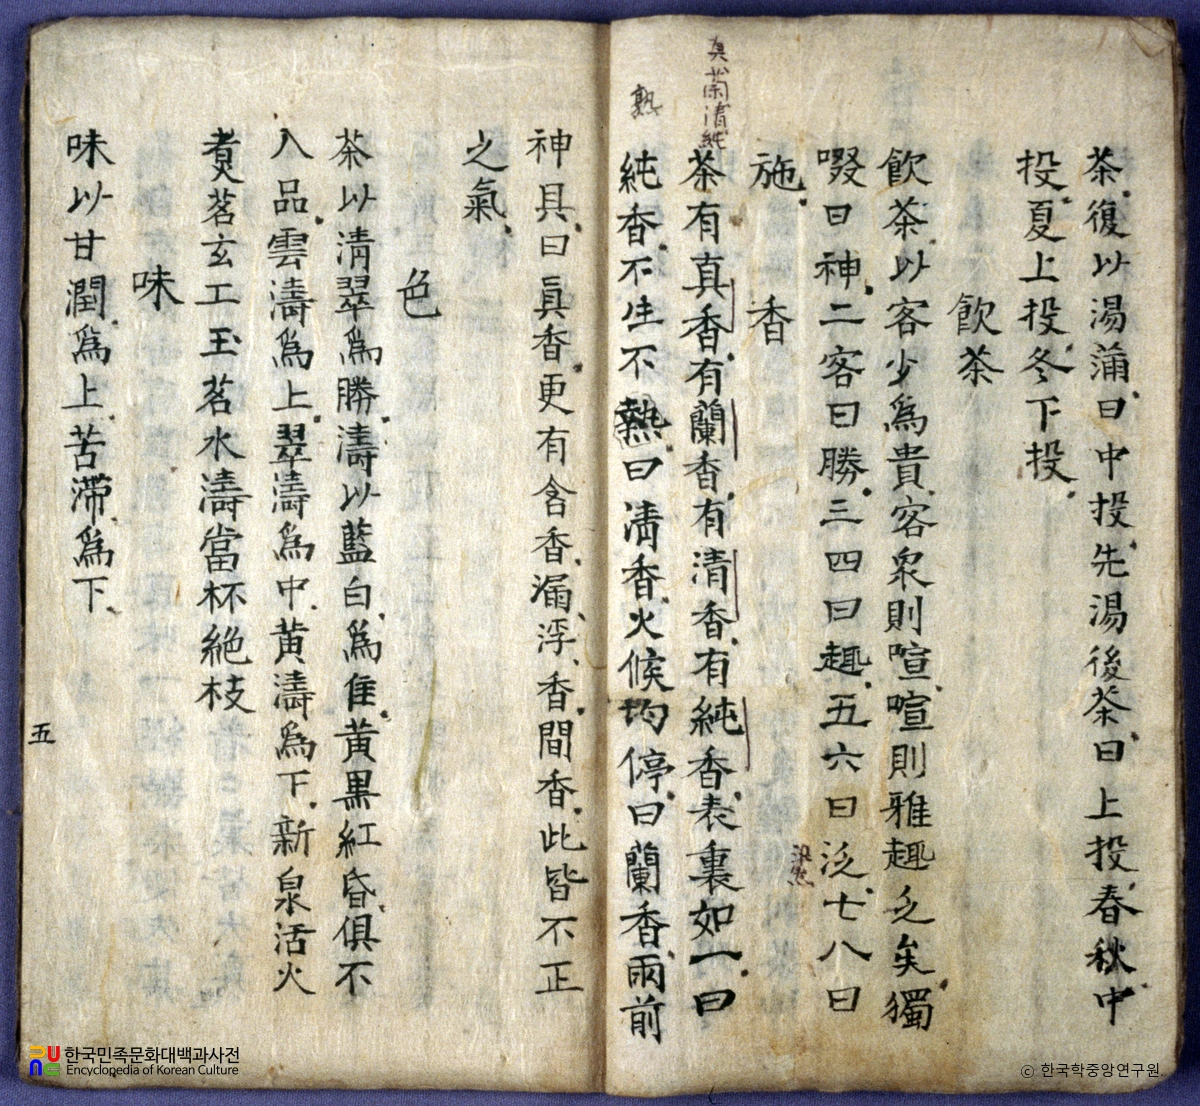 茶復以湯滿曰中投先湯後茶曰上投春秋中
投夏上投冬下投
飮茶
飮茶以客少爲貴客衆則喧喧則雅趣乏矣獨
啜曰神二客曰勝三四曰趣五六曰泛七八曰
施
香
眞蘭清純
茶有真香有蘭香有清香有純香表裏如一曰
熟
純香不生不熱曰淸香火候均停曰蘭香雨前
神具曰眞香更有含香漏浮香間香此皆不正
之氣
色
茶以淸翠爲勝濤以藍白爲佳黃黑紅昏俱不
入品雲濤爲上翠濤爲中黃濤爲下新泉活火
煮茗玄工玉茗水濤當杯絶枝
味
味以甘潤爲上苦滯爲下
五
한국민족문화대백과사전
Encyclopedia of Korean Culture
© 한국학중앙연구원